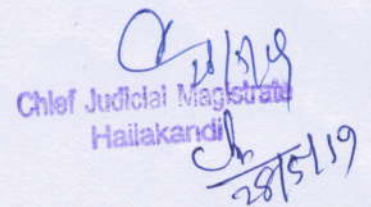 28/5/19
Chief Judicial Magistrate
Hailakandi
28/5/19